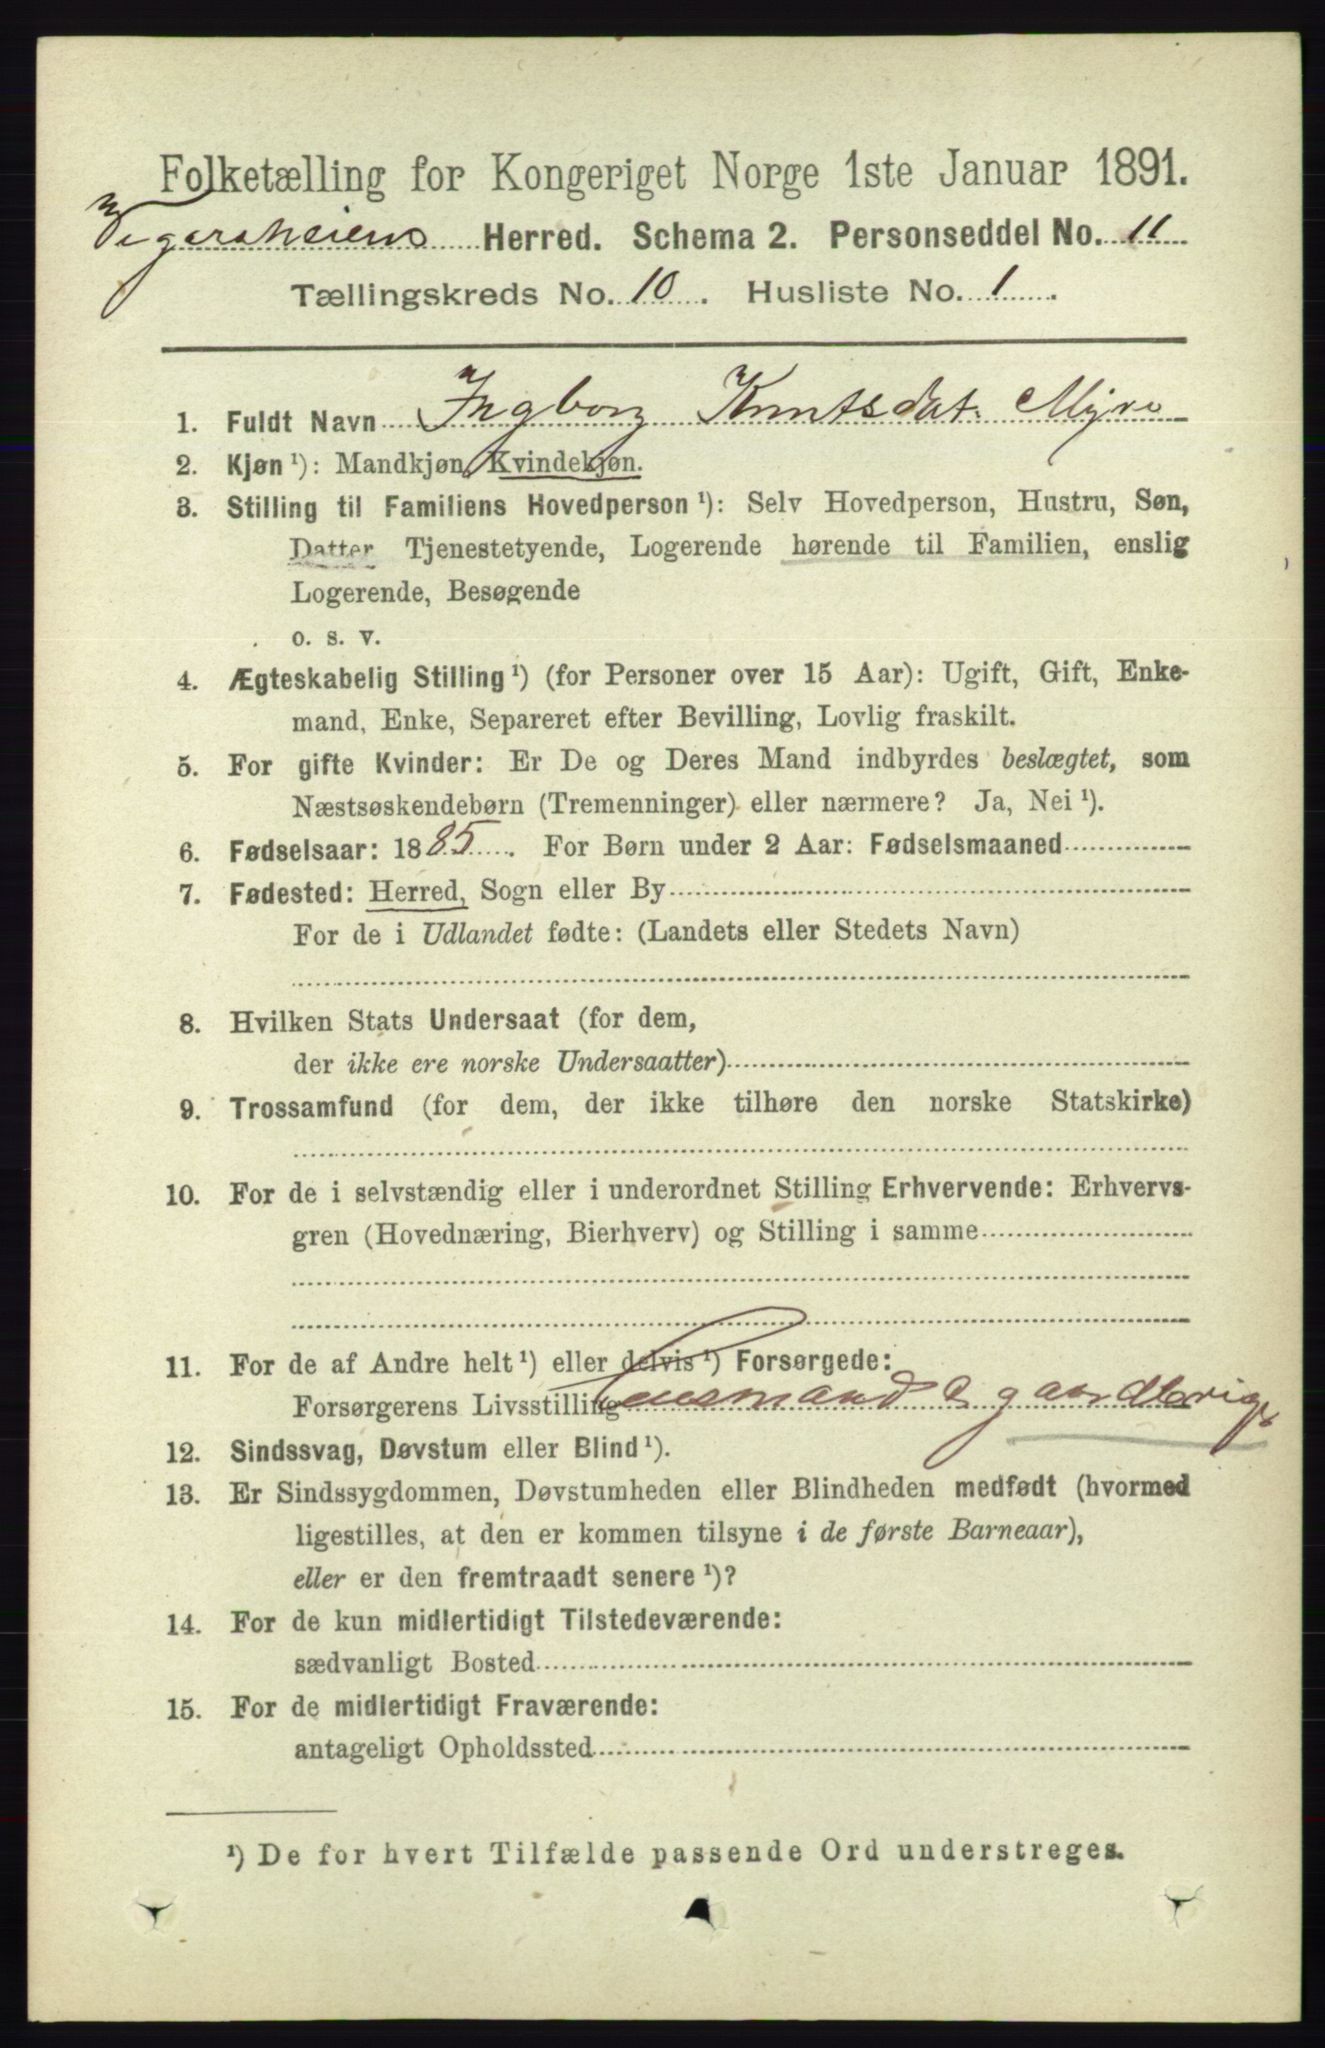 Folketælling for Kongeriget Norge 1ste Januar 1891.
Vegarsheiens Herred. Schema 2. Personseddel No. 11
Tællingskreds No. 10. Husliste No. 1.
1. Fuldt Navn Ingborg Knutsdat. Myre
2. Kjøn ¹): Mandkjøn, Kvindekjøn.
3. Stilling til Familiens Hovedperson ¹): Selv Hovedperson, Hustru, Søn,
Datter, Tjenestetyende, Logerende hørende til Familien, enslig
Logerende, Besøgende
o. s. v.
4. Ægteskabelig Stilling ¹) (for Personer over 15 Aar): Ugift, Gift, Enke-
mand, Enke, Separeret efter Bevilling, Lovlig fraskilt.
5. For gifte Kvinder: Er De og Deres Mand indbyrdes beslægtet, som
Næstsøskendebørn (Tremenninger) eller nærmere? Ja, Nei ¹).
6. Fødselsaar: 1885. For Børn under 2 Aar: Fødselsmaaned
7. Fødested: Herred, Sogn eller By
For de i Udlandet fødte: (Landets eller Stedets Navn)
8. Hvilken Stats Undersaat (for dem,
der ikke ere norske Undersaatter)
9. Trossamfund (for dem, der ikke tilhøre den norske Statskirke)
10. For de i selvstændig eller i underordnet Stilling Erhvervende: Erhvervs-
gren (Hovednæring, Bierhverv) og Stilling i samme
11. For de af Andre helt ¹) eller delvis ¹) Forsørgede:
Forsørgerens Livsstilling Lensmand & gaardbrug
12. Sindssvag, Døvstum eller Blind ¹).
13. Er Sindssygdommen, Døvstumheden eller Blindheden medfødt (hvormed
ligestilles, at den er kommen tilsyne i de første Barneaar),
eller er den fremtraadt senere ¹)?
14. For de kun midlertidigt Tilstedeværende:
sædvanligt Bosted
15. For de midlertidigt Fraværende:
antageligt Opholdssted
¹) De for hvert Tilfælde passende Ord understreges.